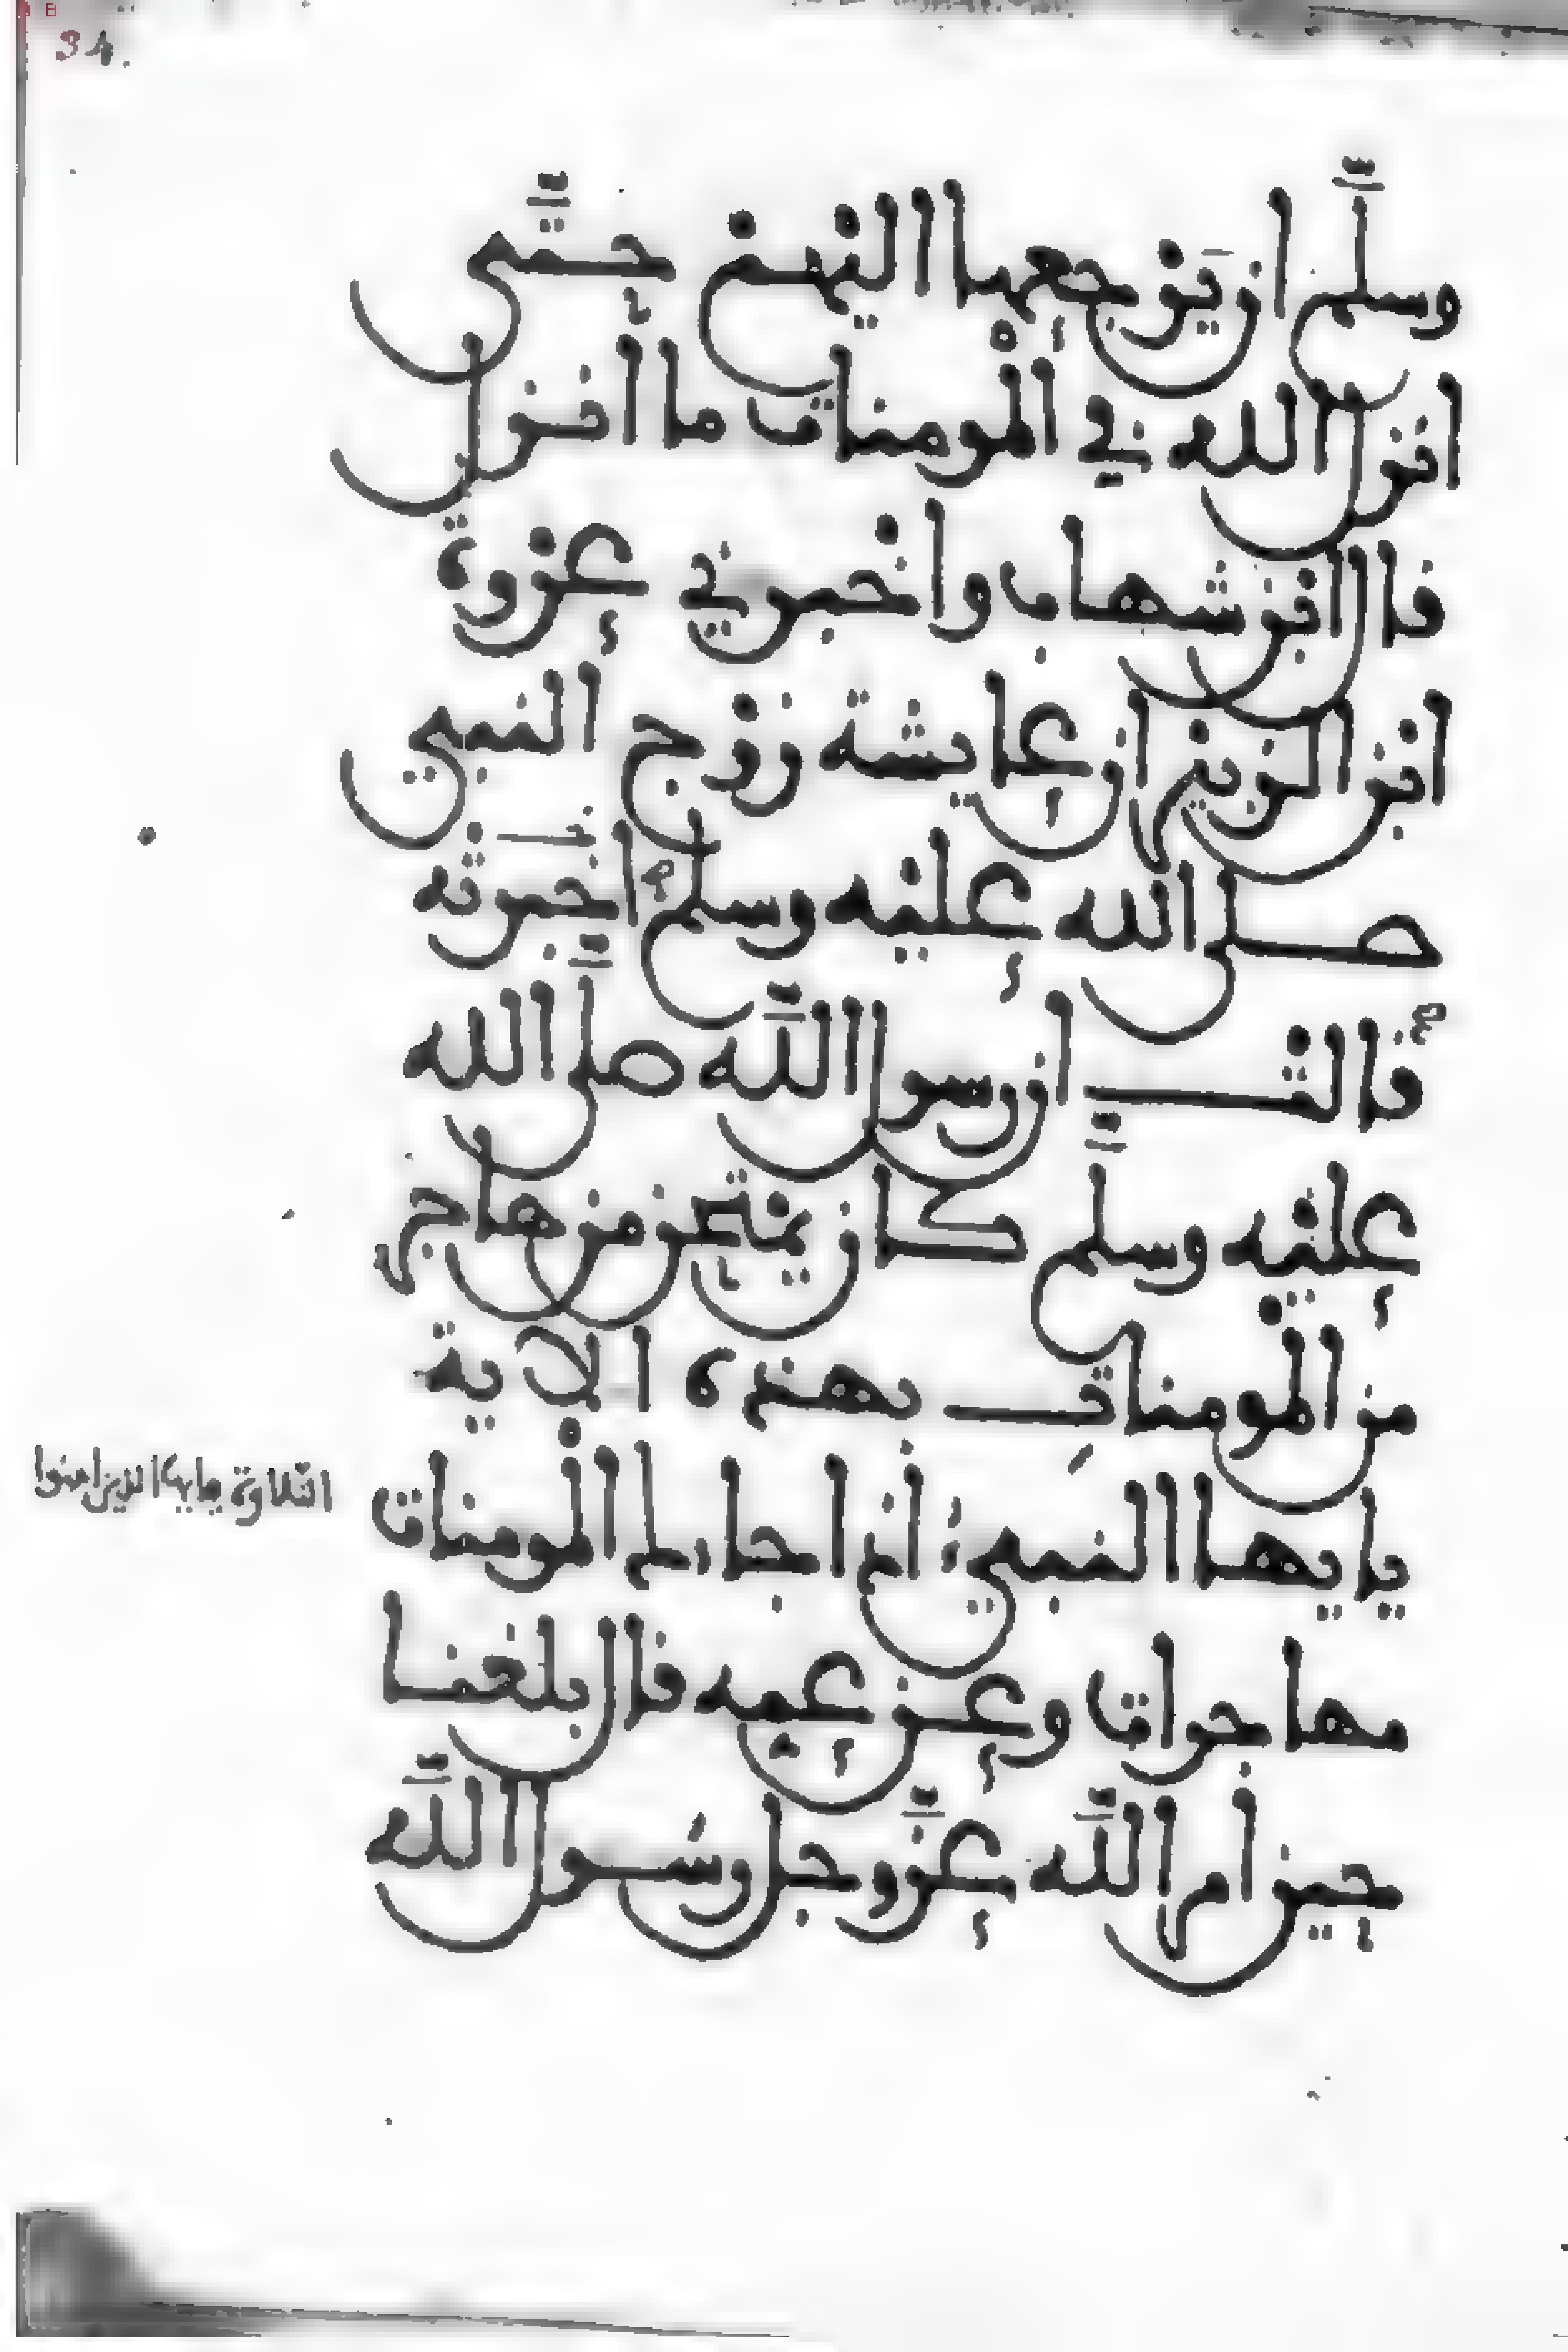 34.
وسلم ان يرجعها اليهم حتى
انزل الله في المومنات ما انزل
قال ابن شهاب واخبرني عروة
ابن الزبير ان عايشة زوج النبي
صلى الله عليه وسلم اخبرته
قالت ان رسول الله صلى الله
عليه وسلم كان يمتحن من هاجر
من المومنات بهذه الاية
يا يها النبيء اذا جاءكم المومنات
التلاوة يايها الذين امنوا
مهاجرات وعن عمه قال بلغنا
حين امر الله عز وجل رسول الله